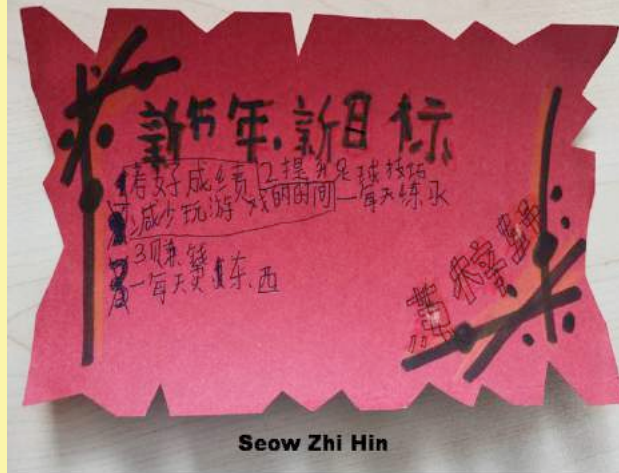 新年,新目标
1考好成绩 2提升足球技巧
-减少玩游戏的时间 -每天练习
3赚钱
-每天卖东西
Seow Zhi Hin